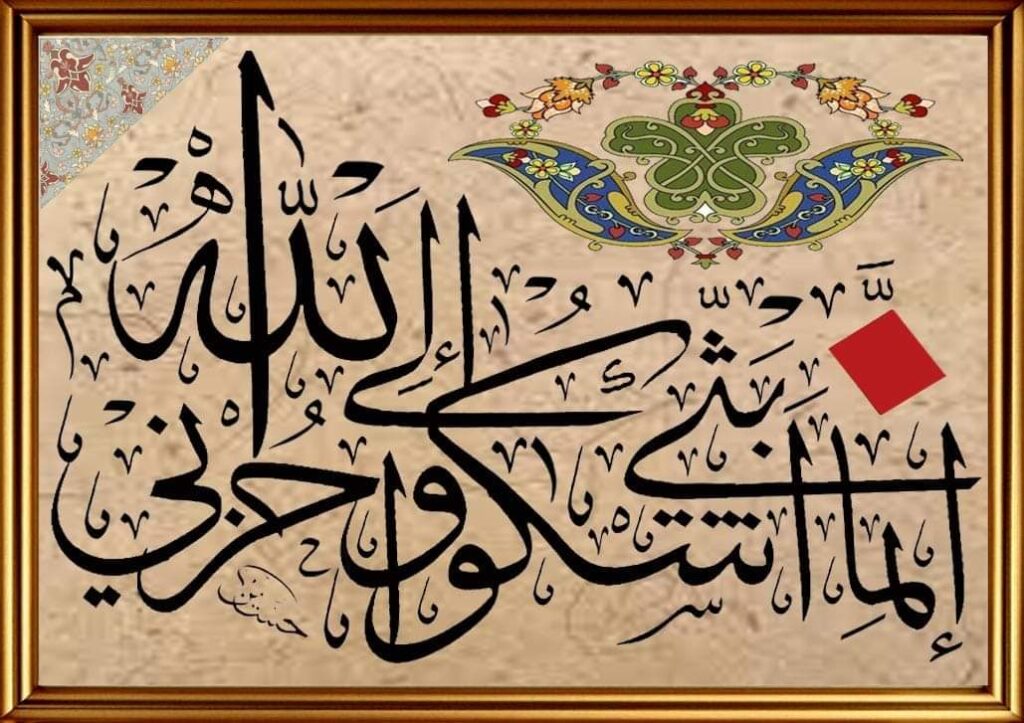 إِنَّمَا أَشْكُوا بَثِّي وَحُزْنِي إِلَى اللَّهِ